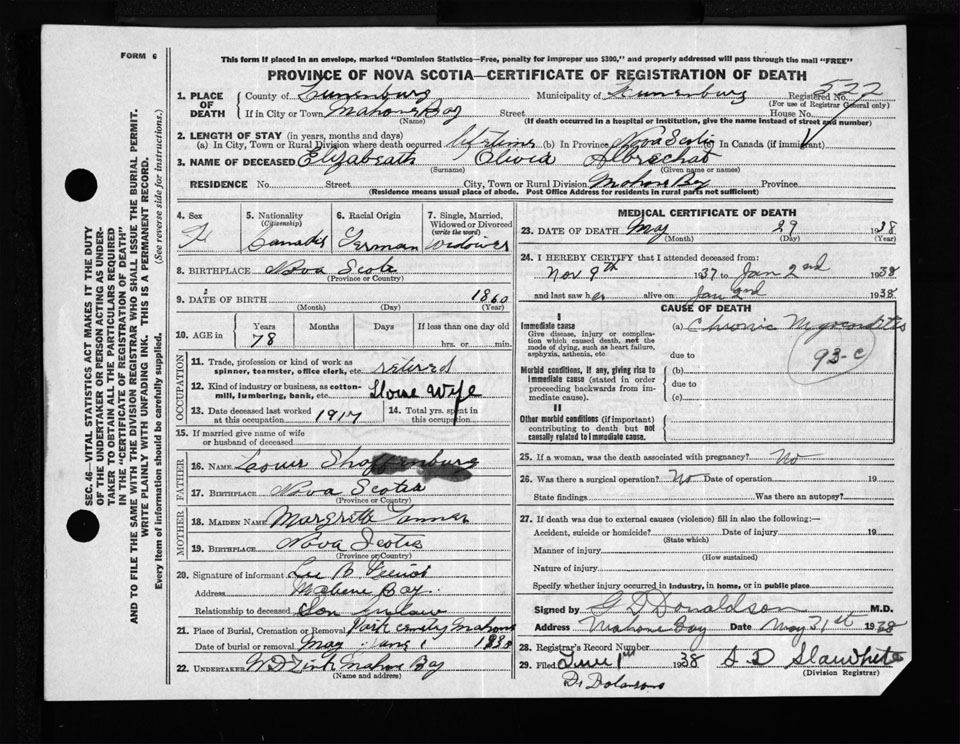 FORM 6
This form if placed in an envelope, marked "Dominion Statistics—Free, penalty for improper use $300," and properly addressed will pass through the mail "FREE"
PROVINCE OF NOVA SCOTIA—CERTIFICATE OF REGISTRATION OF DEATH
1. PLACE OF DEATH County of Lunenburg Municipality of Lunenburg Registered No. 522
(For use of Registrar General only)
If in City or Town Mahone Bay Street House No.
(Name) (If death occurred in a hospital or institution, give the name instead of street and number)
2. LENGTH OF STAY (in years, months and days)
(a) In City, Town or Rural Division where death occurred life time (b) In Province Nova Scotia (c) In Canada (if immigrant)
3. NAME OF DECEASED Elizabeath Olivia
(Surname) (Given name or names)
RESIDENCE No. Street City, Town or Rural Division Mahone Bay Province
(Residence means usual place of abode. Post Office Address for residents in rural parts not sufficient)
SEC. 46—VITAL STATISTICS ACT MAKES IT THE DUTY
OF THE UNDERTAKER OR PERSON ACTING AS UNDER-
TAKER TO OBTAIN ALL THE PARTICULARS REQUIRED
IN THE "CERTIFICATE OF REGISTRATION OF DEATH"
AND TO FILE THE SAME WITH THE DIVISION REGISTRAR WHO SHALL ISSUE THE BURIAL PERMIT.
WRITE PLAINLY WITH UNFADING INK. THIS IS A PERMANENT RECORD.
Every item of information should be carefully supplied. (See reverse side for instructions.)
4. Sex 5. Nationality (Citizenship) 6. Racial Origin 7. Single, Married, Widowed or Divorced (write the word)
F Canada German Widower
8. BIRTHPLACE Nova Scotia
(Province or Country)
9. DATE OF BIRTH 1860
(Month) (Day) (Year)
10. AGE in Years Months Days If less than one day old
78 hrs. or min.
OCCUPATION
11. Trade, profession or kind of work as spinner, teamster, office clerk, etc. retired
12. Kind of industry or business, as cotton-mill, lumbering, bank, etc. House Wife
13. Date deceased last worked at this occupation 1917 14. Total yrs. spent in this occupation
15. If married give name of wife or husband of deceased
FATHER
16. NAME Louis
17. BIRTHPLACE Nova Scotia
(Province or Country)
MOTHER
18. MAIDEN NAME Margrett
19. BIRTHPLACE Nova Scotia
(Province or Country)
20. Signature of informant Lee B
Address Mahone Bay
Relationship to deceased Son in law
21. Place of Burial, Cremation or Removal Park Mahone
Date of burial or removal 1938
22. UNDERTAKER Mahone Bay
(Name and address)
MEDICAL CERTIFICATE OF DEATH
23. DATE OF DEATH May 29 1938
(Month) (Day) (Year)
24. I HEREBY CERTIFY that I attended deceased from:
Nov 9th 1937 to Jan 2nd 1938
and last saw her alive on Jan 2nd 1938
CAUSE OF DEATH
I
Immediate cause (a) Chronic Myocarditis
Give disease, injury or complication which caused death, not the mode of dying, such as heart failure, asphyxia, asthenia, etc. due to
93-c
Morbid conditions, if any, giving rise to immediate cause (stated in order proceeding backwards from immediate cause). (b)
due to
(c)
II
Other morbid conditions (if important) contributing to death but not causally related to immediate cause.
25. If a woman, was the death associated with pregnancy? No
26. Was there a surgical operation? No Date of operation 19
State findings Was there an autopsy?
27. If death was due to external causes (violence) fill in also the following:—
Accident, suicide or homicide? Date of injury 19
(State which)
Manner of injury
(How sustained)
Nature of injury
Specify whether injury occurred in industry, in home, or in public place
Signed by G D Donaldson M.D.
Address Mahone Bay Date May 31st 1938
28. Registrar's Record Number
29. Filed June 1st 1938 S D Slauwhite
(Division Registrar)